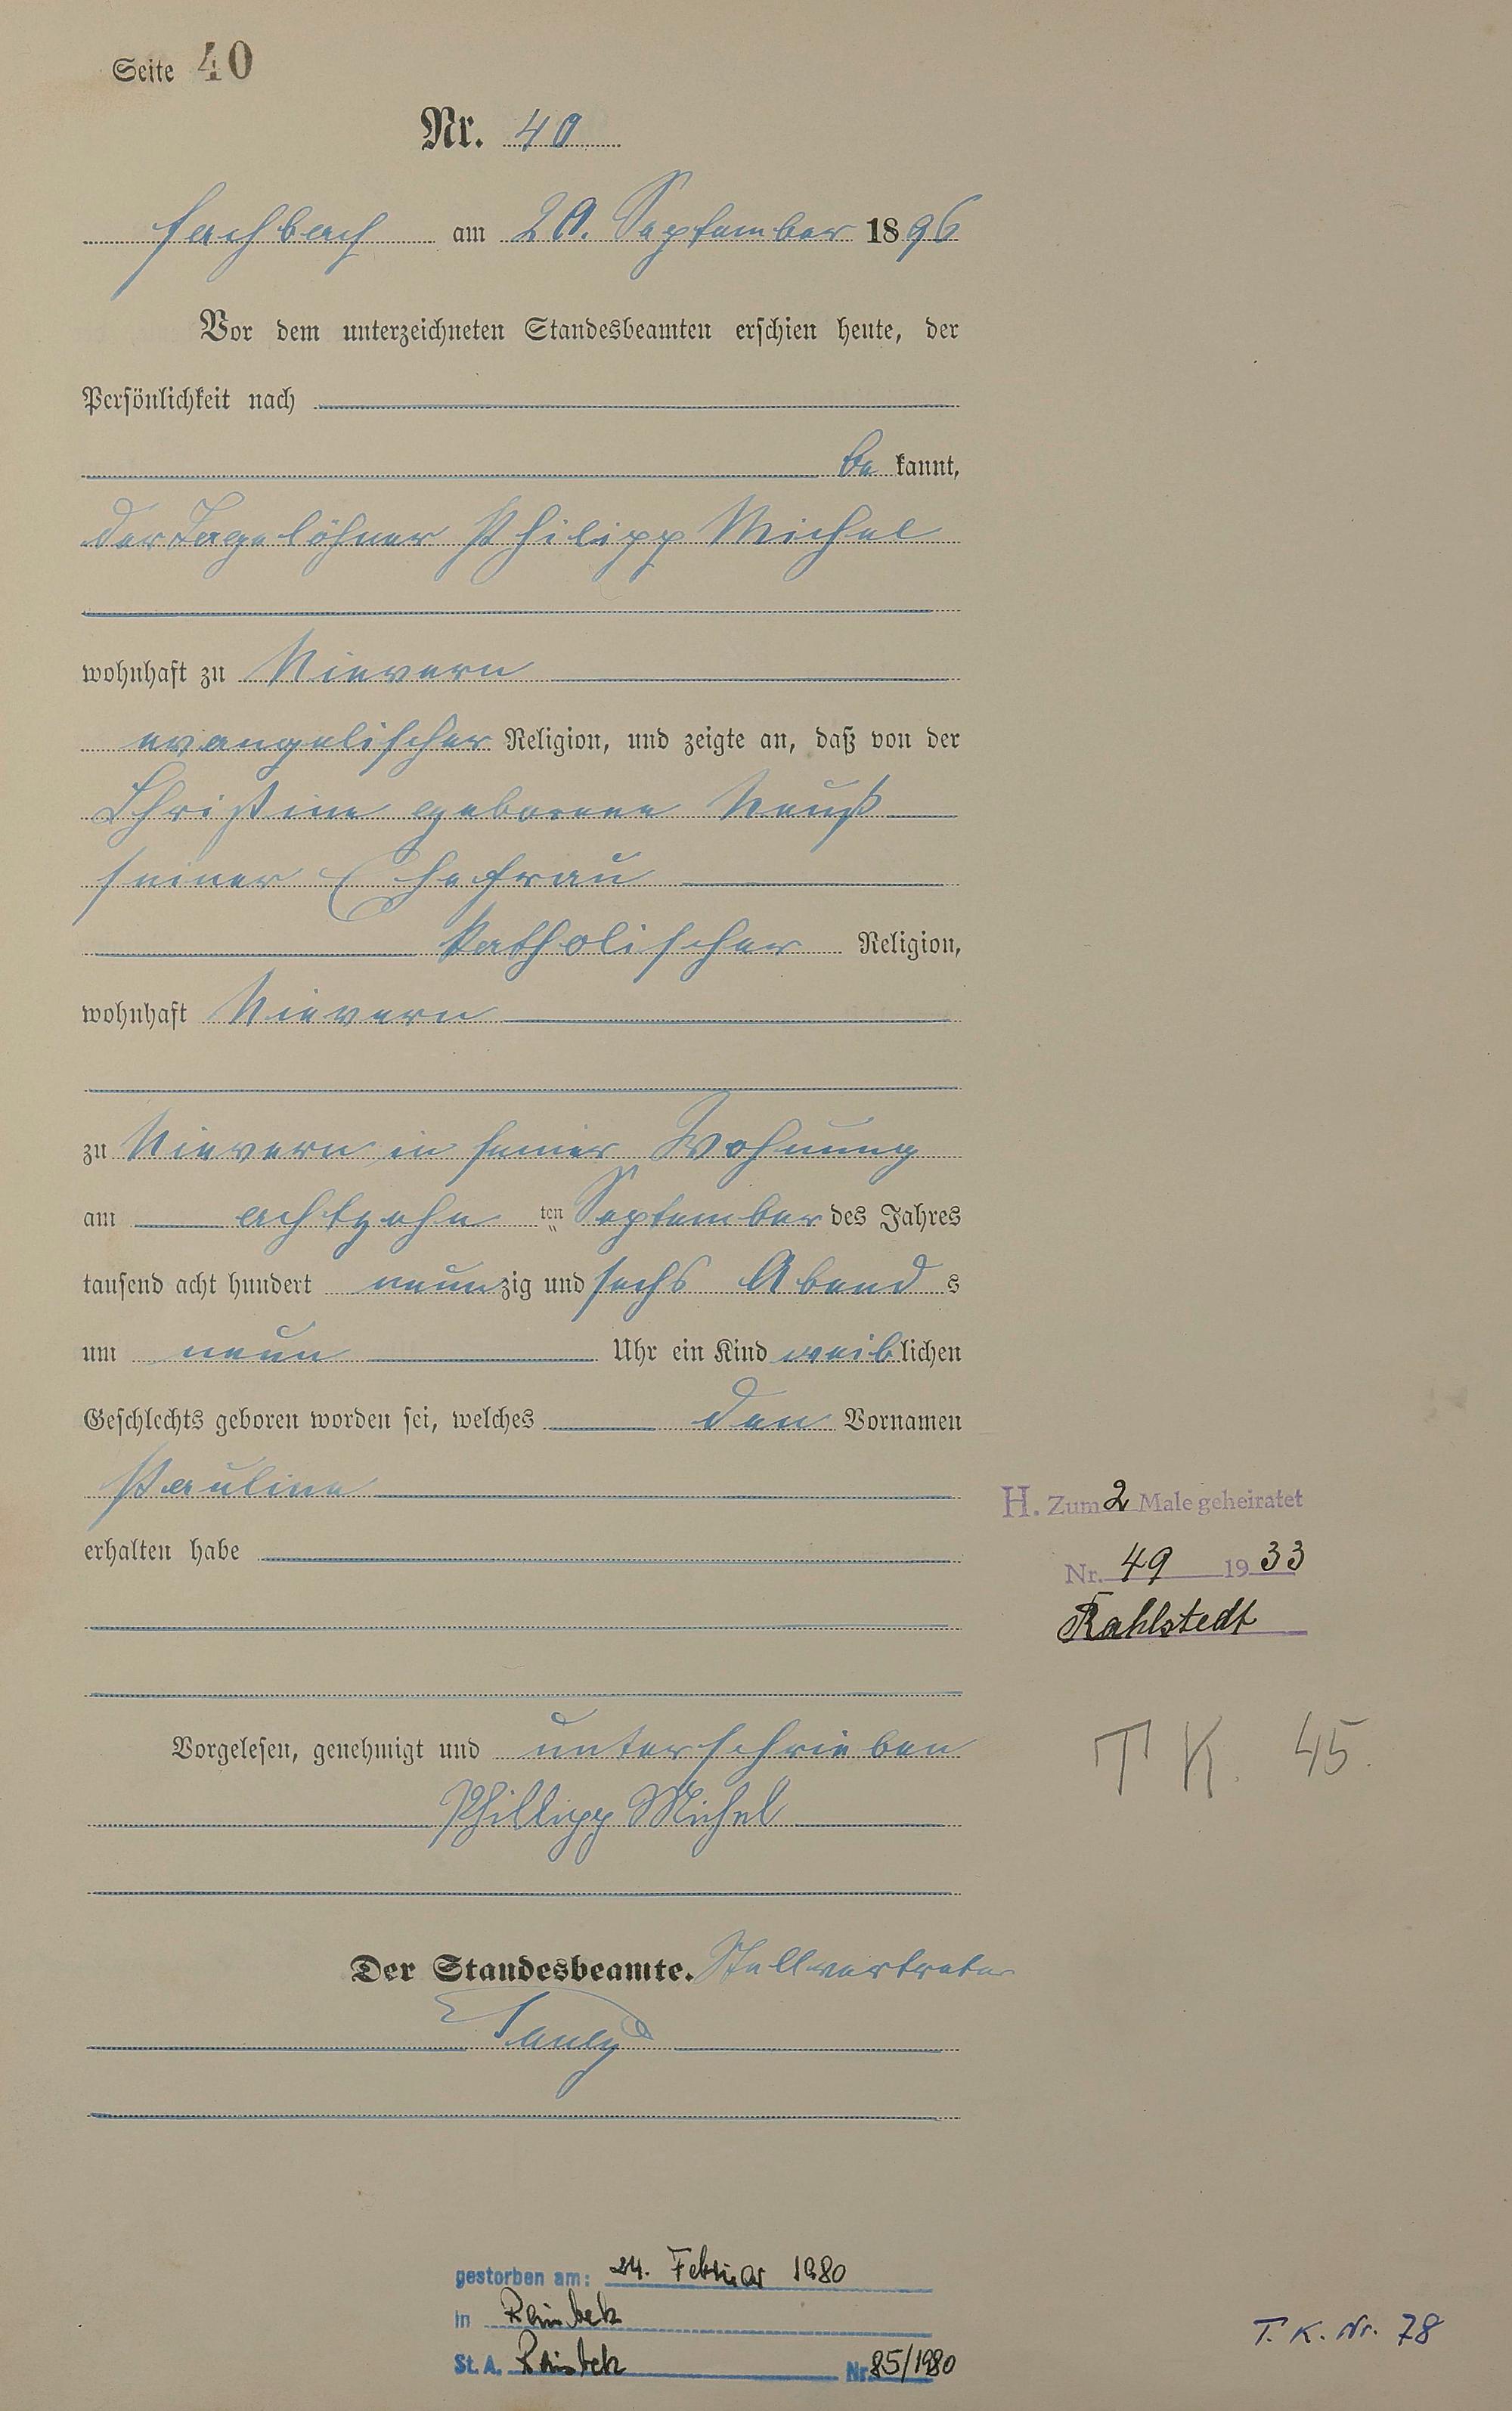 Seite 40
Nr. 40
Fachbach am 20. September 1896
Vor dem unterzeichneten Standesbeamten erschien heute, der
Persönlichkeit nach
be kannt,
der Tagelöhner Philipp Michel
wohnhaft zu Nievern
evangelischer Religion, und zeigte an, daß von der
Christine geborene
seiner Ehefrau
katholischer Religion,
wohnhaft Nievern
zu Nievern in seiner Wohnung
am achtzehn ten September des Jahres
tausend acht hundert neunzig und sechs Abend s
um neun Uhr ein Kind weiblichen
Geschlechts geboren worden sei, welches den Vornamen
Pauline
erhalten habe
H. Zum 2 Male geheiratet
Nr. 49 1933
Rahlstedt
Vorgelesen, genehmigt und unterschrieben
T K. 45.
Phillipp Michel
Der Standesbeamte. Stellvertreter
gestorben am: 24. Februar 1980
in Reinbek
St. A. Reinbek Nr. 85/1980
T. K. Nr. 78